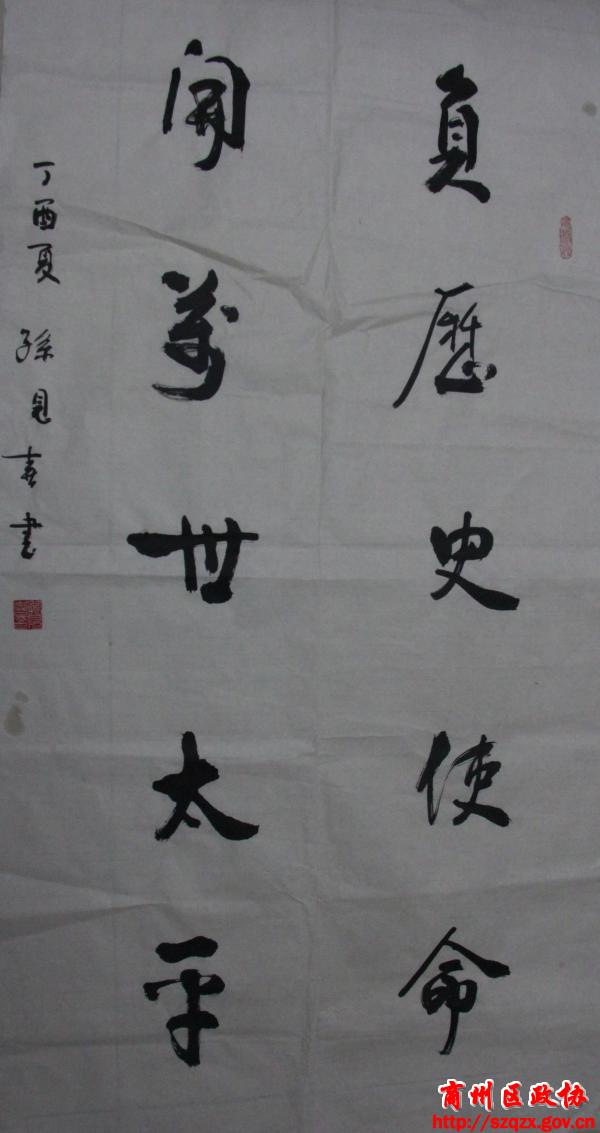 負歷史使命
開萬世太平
丁酉夏 孫見喜書
商州区政协
http://szqzx.gov.cn